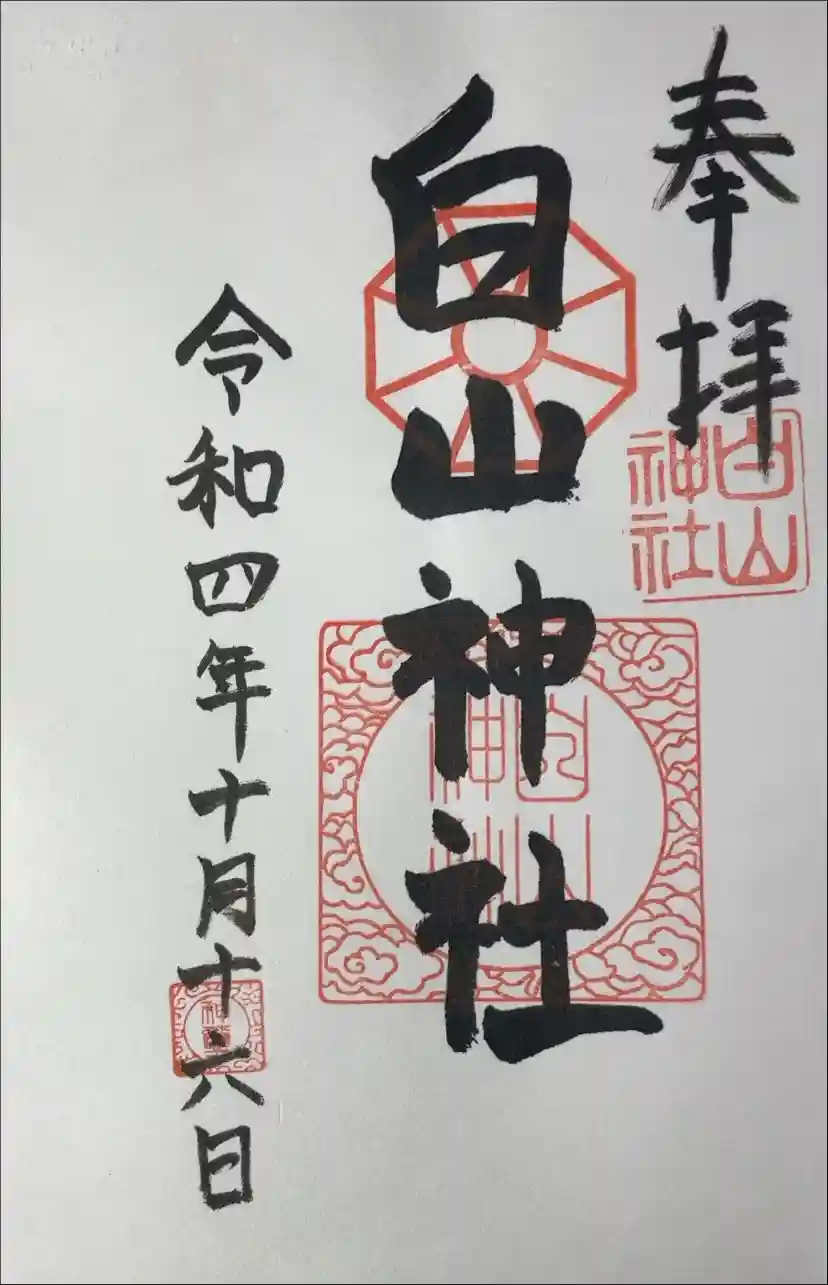 奉拝
白山
神社
白山神社
令和四年十月十六日